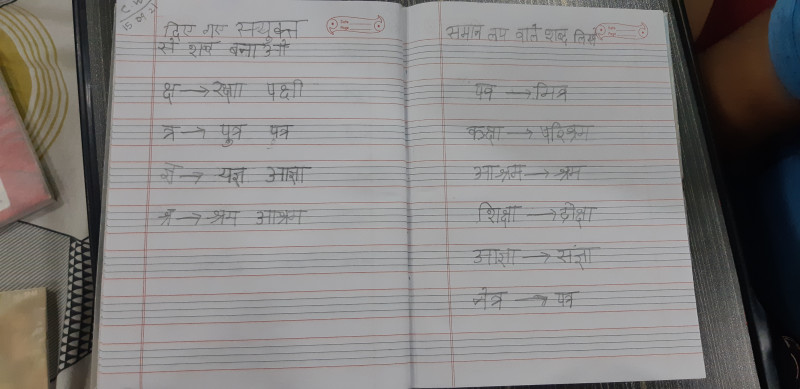 C.W
दिए गए सयुंक्त
से शब्द बनाओ
क्ष → रक्षा पक्षी
त्र → पुत्र पत्र
ज्ञ → यज्ञ आज्ञा
श्र → श्रम आश्रम
समान लय वाले शब्द लिखें
→ मित्र
कक्षा → परिश्रम
आश्रम → श्रम
शिक्षा → दीक्षा
आज्ञा → संज्ञा
नेत्र → पत्र